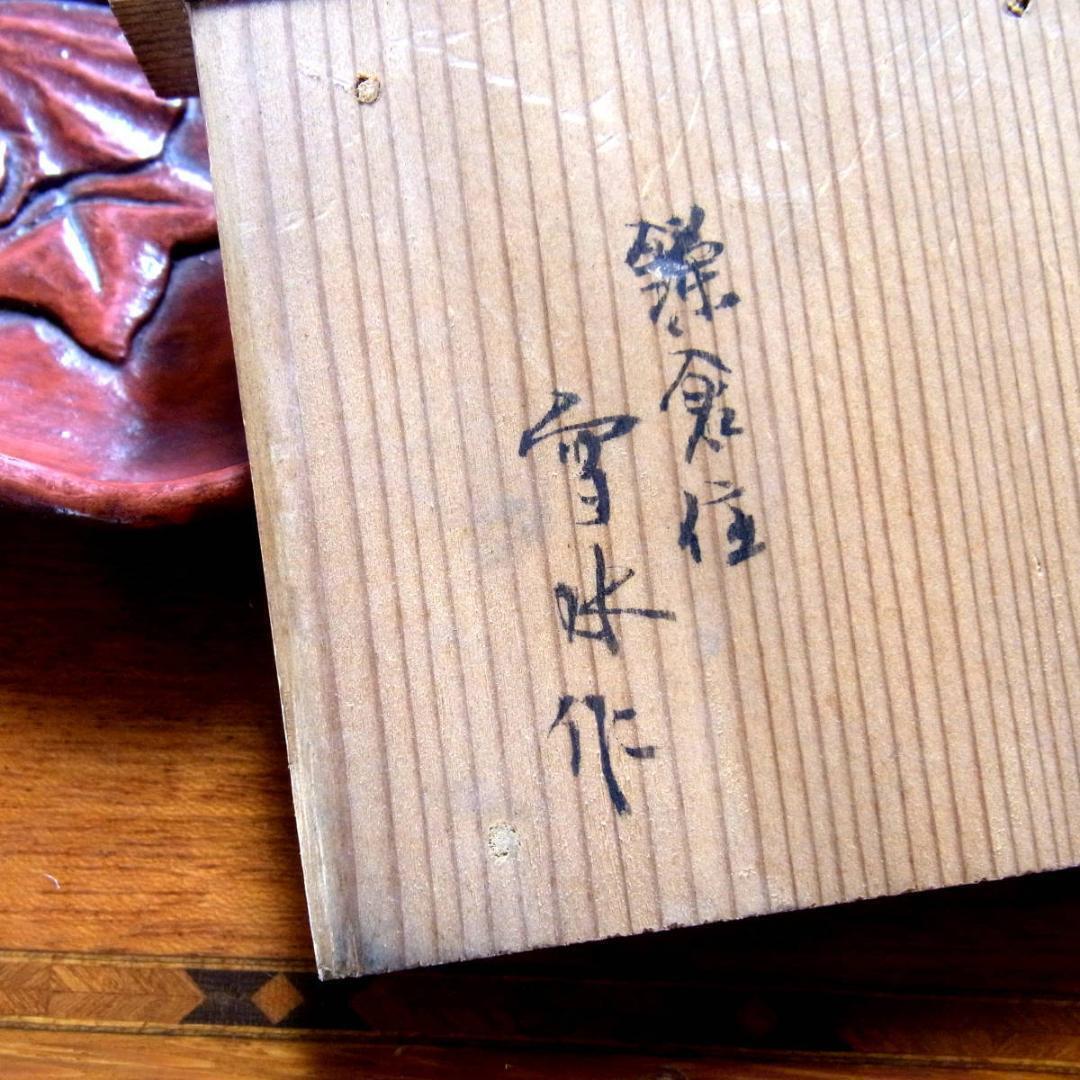 鎌倉住
雪水作